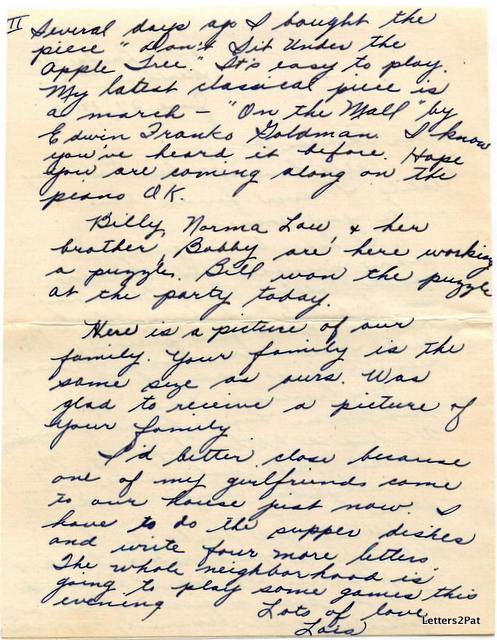 II
Several days ago I bought the
piece "Don't Sit Under the
Apple Tree." It's easy to play.
My latest classical piece is
a march - "On the Mall" by
Edwin Franko Goldman. I know
you've heard it before. Hope
you are coming along on the
piano OK.
Billy, Norma Lou, & her
brother, Bobby are here working
a puzzle. Bill won the puzzle
at the party today.
Here is a picture of our
family. Your family is the
same size as ours. Was
glad to receive a picture of
your family
I'd better close because
one of my girlfriends came
to our house just now. I
have to do the supper dishes
and write four more letters.
The whole neighborhood is
going to play some games this
evening
Lots of love
Lois
Letters2Pat